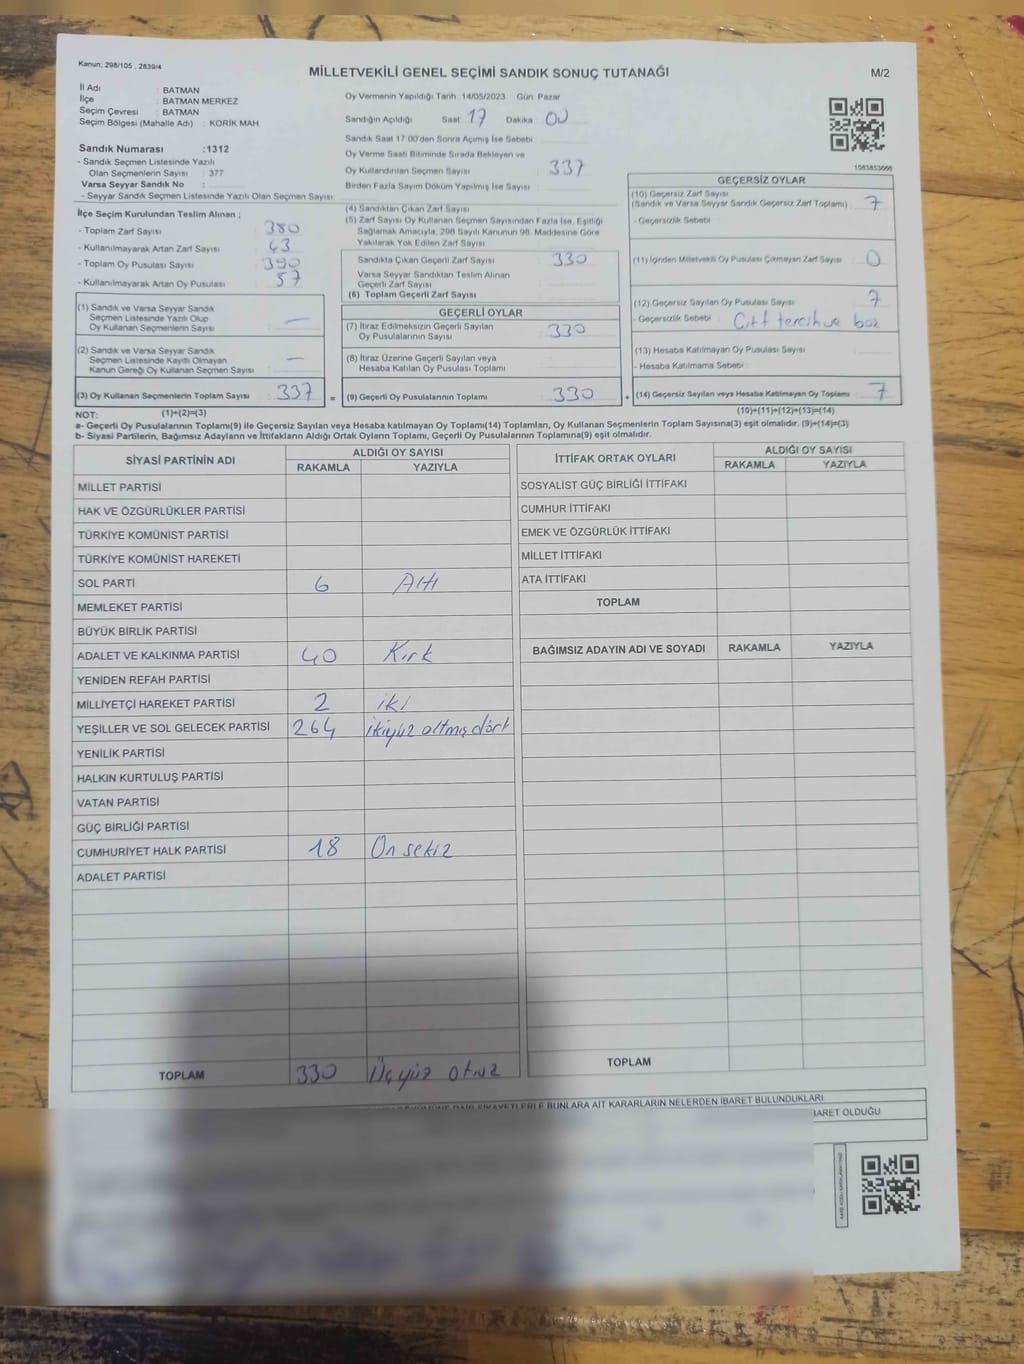 Kanun; 298/105 , 2839/4
MİLLETVEKİLİ GENEL SEÇİMİ SANDIK SONUÇ TUTANAĞI
M/2
İl Adı : BATMAN
İlçe : BATMAN MERKEZ
Seçim Çevresi : BATMAN
Seçim Bölgesi (Mahalle Adı) : KORİK MAH.
Sandık Numarası :1312
- Sandık Seçmen Listesinde Yazılı
Olan Seçmenlerin Sayısı : 377
Varsa Seyyar Sandık No :
- Seyyar Sandık Seçmen Listesinde Yazılı Olan Seçmen Sayısı:
Oy Vermenin Yapıldığı Tarih :14/05/2023 Gün: Pazar
Sandığın Açıldığı Saat 17 Dakika 00
Sandık Saat 17:00'den Sonra Açımış İse Sebebi :
Oy Verme Saati Bitiminde Sırada Bekleyen ve
Oy Kullandırılan Seçmen Sayısı : 337
Birden Fazla Sayım Döküm Yapılmış İse Sayısı :
1083853666
İlçe Seçim Kurulundan Teslim Alınan ;
- Toplam Zarf Sayısı : 380
- Kullanılmayarak Artan Zarf Sayısı : 43
- Toplam Oy Pusulası Sayısı : 390
- Kullanılmayarak Artan Oy Pusulası : 57
(1) Sandık ve Varsa Seyyar Sandık
Seçmen Listesinde Yazılı Olup
Oy Kullanan Seçmenlerin Sayısı : —
(2) Sandık ve Varsa Seyyar Sandık
Seçmen Listesinde Kayıtlı Olmayan
Kanun Gereği Oy Kullanan Seçmen Sayısı : —
(3) Oy Kullanan Seçmenlerin Toplam Sayısı : 337 =
(4) Sandıktan Çıkan Zarf Sayısı :
(5) Zarf Sayısı Oy Kullanan Seçmen Sayısından Fazla İse, Eşitliği
Sağlamak Amacıyla, 298 Sayılı Kanunun 98. Maddesine Göre
Yakılarak Yok Edilen Zarf Sayısı
Sandıkta Çıkan Geçerli Zarf Sayısı : 330
Varsa Seyyar Sandıktan Teslim Alınan
Geçerli Zarf Sayısı :
(6) Toplam Geçerli Zarf Sayısı :
GEÇERLİ OYLAR
(7) İtiraz Edilmeksizin Geçerli Sayılan
Oy Pusulalarının Sayısı : 330
(8) İtiraz Üzerine Geçerli Sayılan veya
Hesaba Katılan Oy Pusulası Toplamı :
(9) Geçerli Oy Pusulalarının Toplamı : 330 +
GEÇERSİZ OYLAR
(10) Geçersiz Zarf Sayısı
(Sandık ve Varsa Seyyar Sandık Geçersiz Zarf Toplamı) : 7
- Geçersizlik Sebebi :
(11) İçinden Milletvekili Oy Pusulası Çıkmayan Zarf Sayısı : 0
(12) Geçersiz Sayılan Oy Pusulası Sayısı : 7
- Geçersizlik Sebebi : Çift tercih ve boz
(13) Hesaba Katılmayan Oy Pusulası Sayısı :
- Hesaba Katılmama Sebebi :
(14) Geçersiz Sayılan veya Hesaba Katılmayan Oy Toplamı : 7
NOT: (1)+(2)=(3)
(10)+(11)+(12)+(13)=(14)
a- Geçerli Oy Pusulalarının Toplamı(9) ile Geçersiz Sayılan veya Hesaba katılmayan Oy Toplamı(14) Toplamları, Oy Kullanan Seçmenlerin Toplam Sayısına(3) eşit olmalıdır. (9)+(14)=(3)
b- Siyasi Partilerin, Bağımsız Adayların ve İttifakların Aldığı Ortak Oyların Toplamı, Geçerli Oy Pusulalarının Toplamına(9) eşit olmalıdır.
SİYASİ PARTİNİN ADI
ALDIĞI OY SAYISI
RAKAMLA YAZIYLA
MİLLET PARTİSİ
HAK VE ÖZGÜRLÜKLER PARTİSİ
TÜRKİYE KOMÜNİST PARTİSİ
TÜRKİYE KOMÜNİST HAREKETİ
SOL PARTİ 6 Altı
MEMLEKET PARTİSİ
BÜYÜK BİRLİK PARTİSİ
ADALET VE KALKINMA PARTİSİ 40 Kırk
YENİDEN REFAH PARTİSİ
MİLLİYETÇİ HAREKET PARTİSİ 2 iki
YEŞİLLER VE SOL GELECEK PARTİSİ 264 İkiyüz altmış dört
YENİLİK PARTİSİ
HALKIN KURTULUŞ PARTİSİ
VATAN PARTİSİ
GÜÇ BİRLİĞİ PARTİSİ
CUMHURİYET HALK PARTİSİ 18 On sekiz
ADALET PARTİSİ
TOPLAM 330 Üçyüz otuz
İTTİFAK ORTAK OYLARI
ALDIĞI OY SAYISI
RAKAMLA YAZIYLA
SOSYALİST GÜÇ BİRLİĞİ İTTİFAKI
CUMHUR İTTİFAKI
EMEK VE ÖZGÜRLÜK İTTİFAKI
MİLLET İTTİFAKI
ATA İTTİFAKI
TOPLAM
BAĞIMSIZ ADAYIN ADI VE SOYADI RAKAMLA YAZIYLA
TOPLAM
BUNLARA AİT KARARLARIN NELERDEN İBARET BULUNDUKLARI
İBARET OLDUĞU